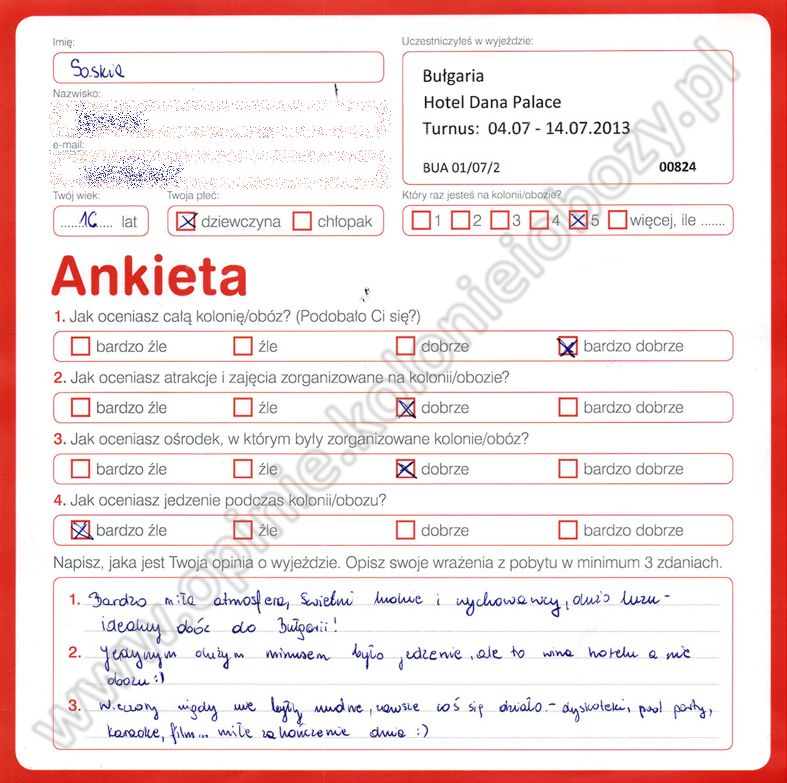 Imię:
Saskia
Uczestniczyłeś w wyjeździe:
Bułgaria
Hotel Dana Palace
Turnus: 04.07 - 14.07.2013
BUA 01/07/2
00824
Nazwisko:
e-mail:
Twój wiek:
16 lat
Twoja płeć:
dziewczyna chłopak
Który raz jesteś na kolonii/obozie?
1 2 3 4 5 więcej, ile .......
Ankieta
1. Jak oceniasz całą kolonię/obóz? (Podobało Ci się?)
bardzo źle źle dobrze bardzo dobrze
2. Jak oceniasz atrakcje i zajęcia zorganizowane na kolonii/obozie?
bardzo źle źle dobrze bardzo dobrze
3. Jak oceniasz ośrodek, w którym były zorganizowane kolonie/obóz?
bardzo źle źle dobrze bardzo dobrze
4. Jak oceniasz jedzenie podczas kolonii/obozu?
bardzo źle źle dobrze bardzo dobrze
Napisz, jaka jest Twoja opinia o wyjeździe. Opisz swoje wrażenia z pobytu w minimum 3 zdaniach.
1. Bardzo miła atmosfera, świetni i wychowawcy, dużo luzu -
idealny obóz do Bułgarii!
2. Jedynym dużym minusem było jedzenie, ale to wina hotelu a nie
obozu :)
3. Wieczory nigdy nie były nudne, zawsze coś się działo - dyskoteki, pool party,
karaoke, film... miłe zakończenie dnia :)
www.opinie.kolonieiobozy.pl